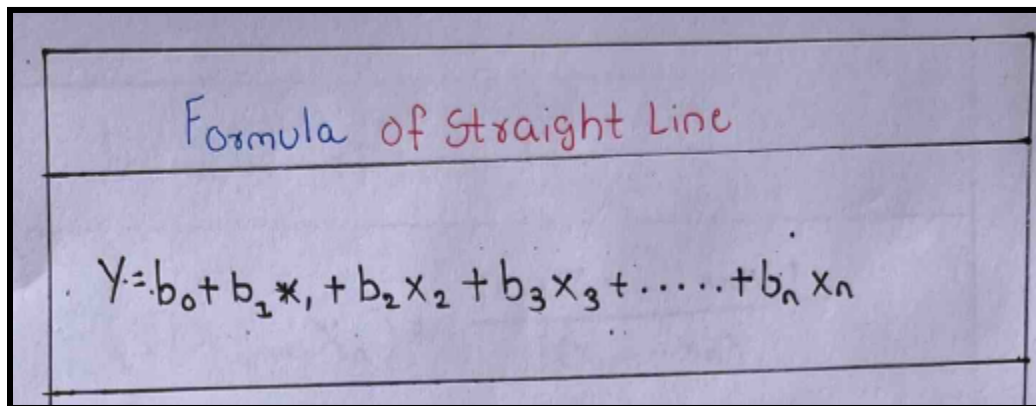 Formula of Straight Line
Y = b₀ + b₁x₁ + b₂x₂ + b₃x₃ + ..... + bₙxₙ